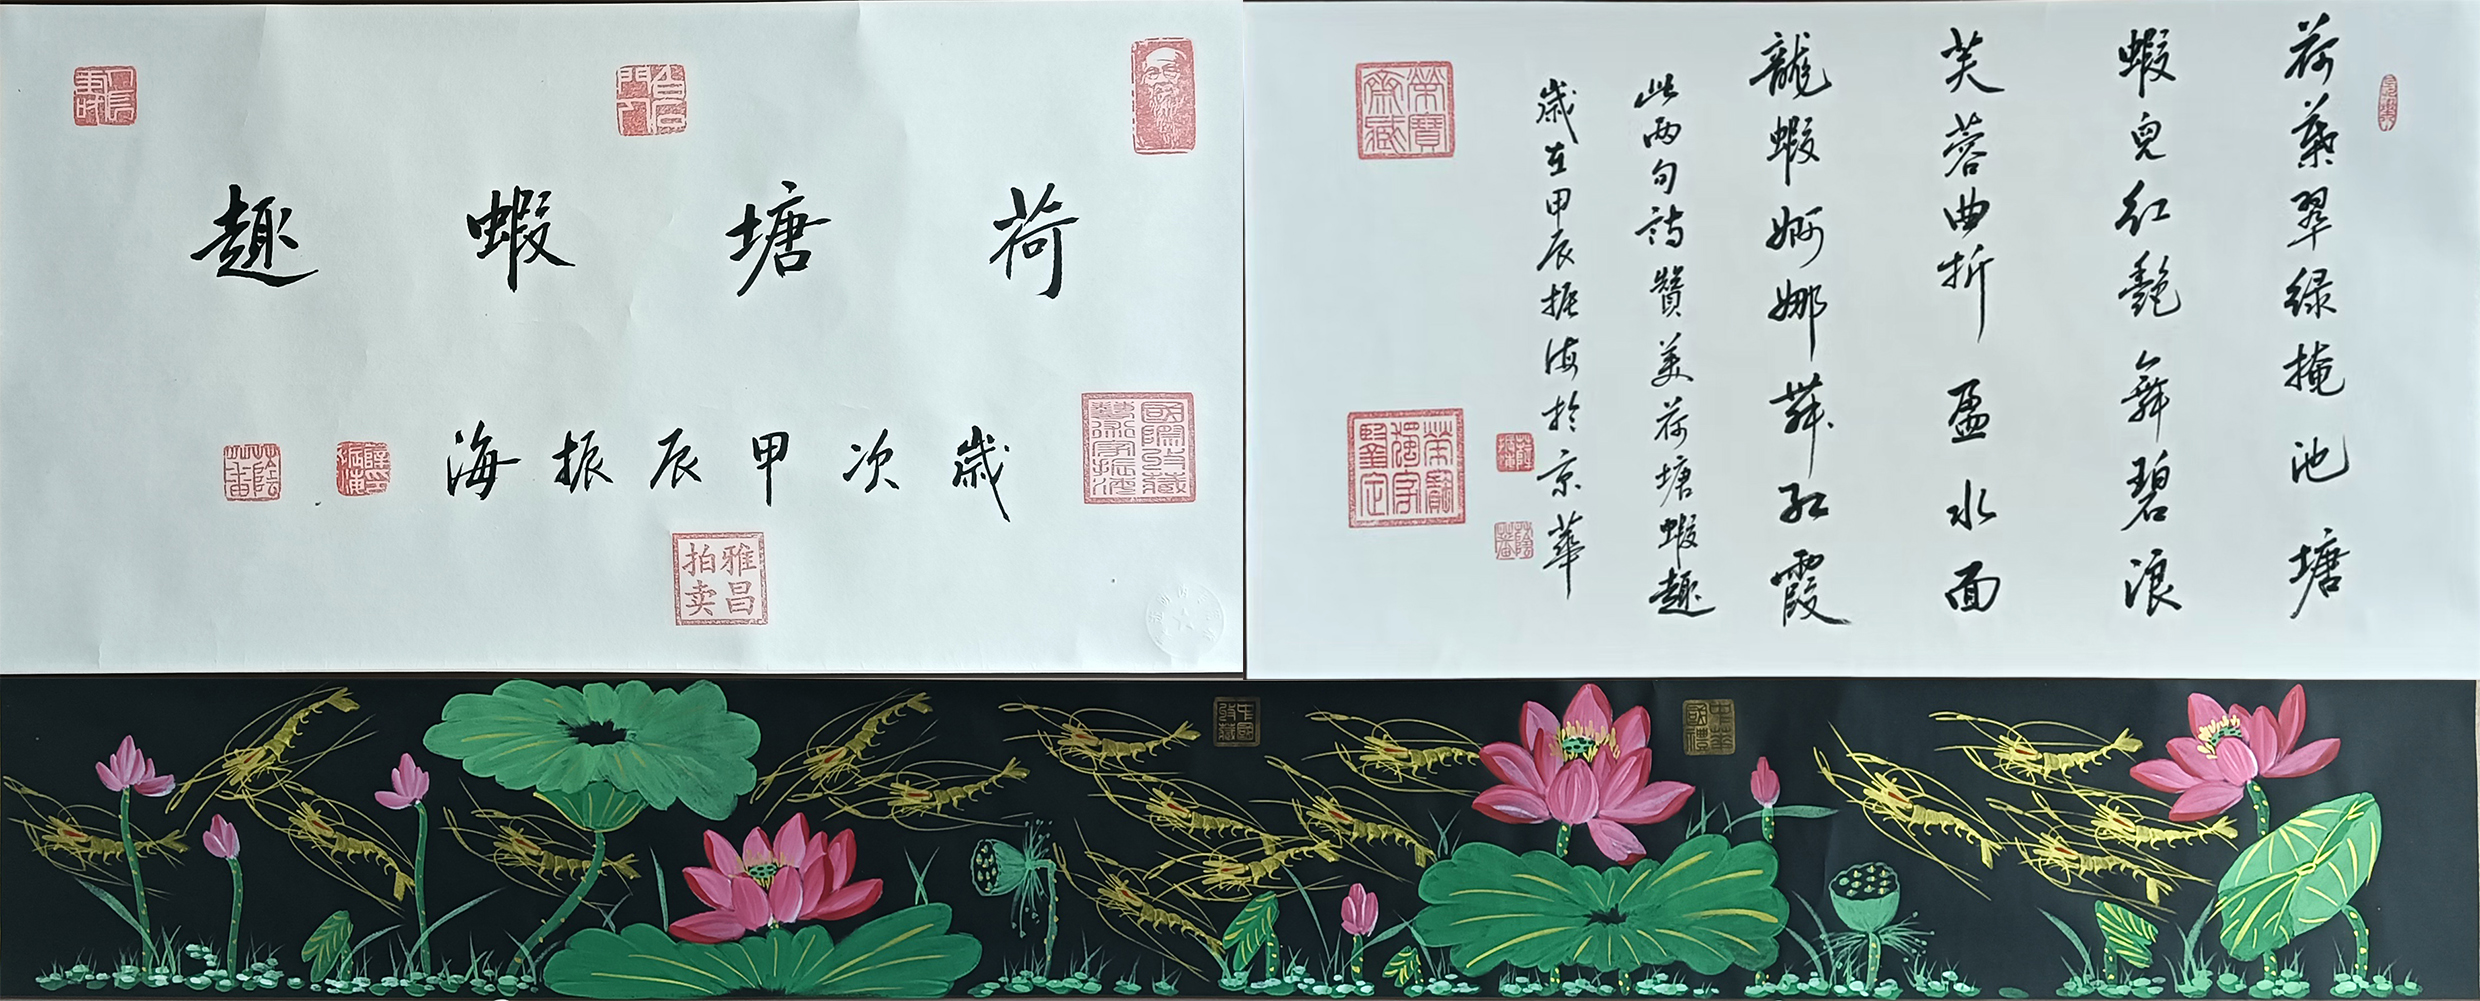 荷塘蝦趣
歲次甲辰振海
雅昌
拍卖
荷葉翠绿掩池塘
蝦兒红艷舞碧浪
芙蓉曲折盈水面
龍蝦婀娜舞红霞
此两句詩贊美荷塘蝦趣
歲在甲辰振海於京華
榮寶
齋藏